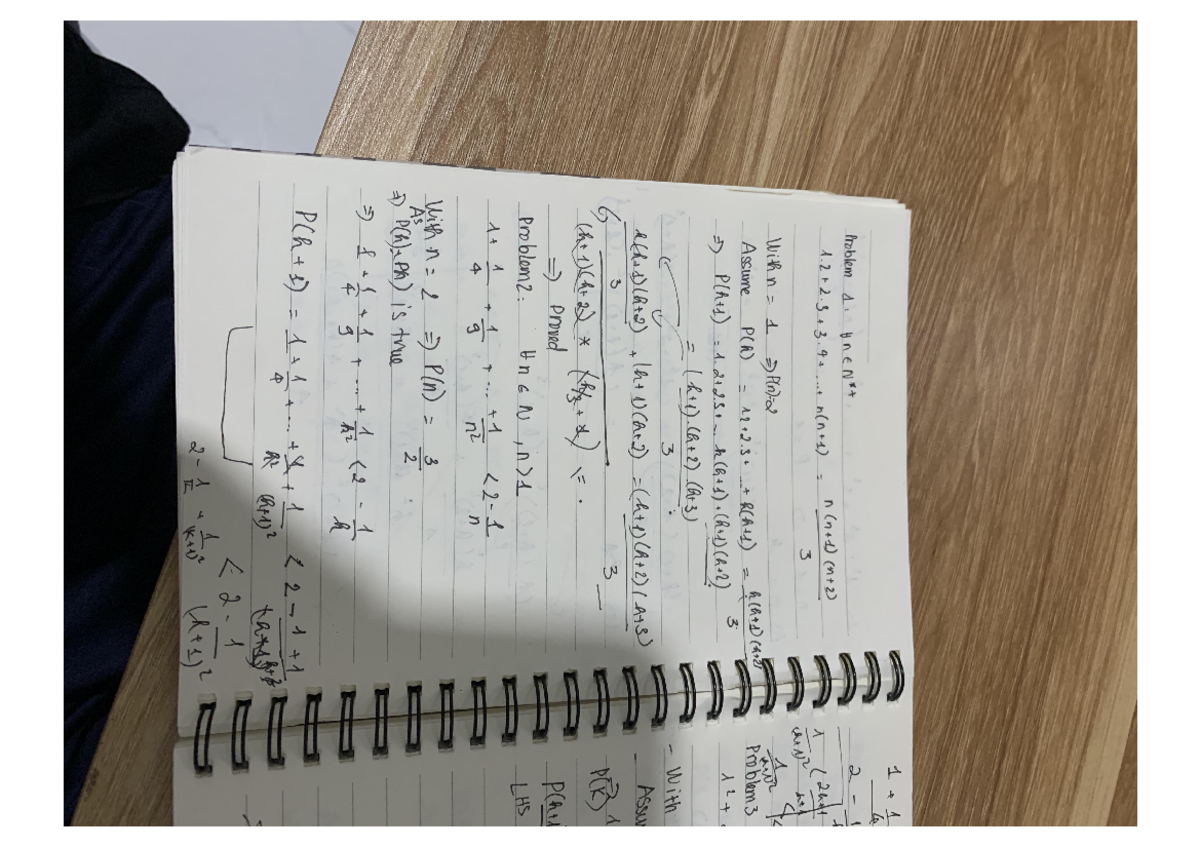 Problem 1. ∀ n ∈ N*.
1.2 + 2.3 + 3.4 + ... + n(n+1) = n(n+1)(n+2) / 3
With n = 1 => P(n) = 2
Assume P(k) = 1.2 + 2.3 + ... + k(k+1) = k(k+1)(k+2) / 3
=> P(k+1) = 1.2 + 2.3 + ... k(k+1) + (k+1)(k+2)
= (k+1).(k+2)(k+3) / 3
k(k+1)(k+2) / 3 + (k+1)(k+2) = (k+1)(k+2)(k+3) / 3
(k+1)(k+2) * (k/3 + 1) =
=> Proved
Problem 2: ∀ n ∈ N, n > 1
1 + 1/4 + 1/9 + ... + 1/n² < 2 - 1/n
With n = 2 => P(n) = 3/2
As
=> P(k) is true
=> 1 + 1/4 + 1/9 + ... + 1/k² < 2 - 1/k
P(k+1) = 1 + 1/4 + ... + 1/k² + 1/(k+1)² < 2 -
2 - 1/k + 1/(k+1)² < 2 - 1
1 +
2 -
Problem 3
1² +
- With
- Assum
P(k)
P(k+1
LHS